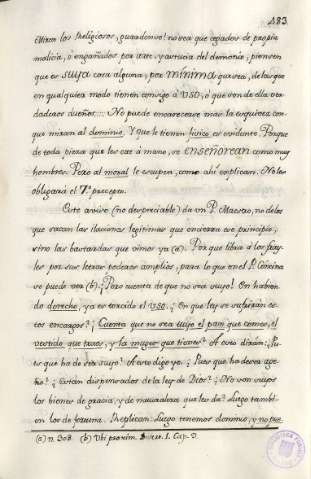 483
Miren los Religiosos, guardense! no sea que cegados de propia
malicia, ò engañados por arte, y astucia del demonio, piensen
que es suya cosa alguna, por minima que sea, de las que
en qualquiera modo tienen consigo à uso, ò que son de ella ver-
daderos dueños..... No puede encarecerse mas la esquivez con
que miran al dominio. Y que le tienen fisico es evidente. Porque
de toda pieza que les cae à mano, se enseñorean como muy
hombres. Pero al moral le escupen, como ahi explican. No les
obligarà el 7.º precepto.
Este aviso (no despreciable) dà un P. Maestro, no de los
que sacan las ilaciones legitimas que encierra ese principio,
sino las bastardas que vimos ya (a). Porque libra à los fray-
les por sus letras poderes amplios, para lo que en el P.
se puede ver (b). Pero cuenta de que no sea suyo! En habien-
do derecho, ya es torcido el uso. ¿En que ley se sufrirán es-
tos encargos? ¿Cuenta que no sea suyo el pan que comes, el
vestido que traes, y la muger que tienes? A esto dirán: ¿Pu-
es que ha de ser suyo? A esto digo yo: ¿Pues que ha de ser age-
no? ¿Están dispensados de la ley de Dios? ¿No son suyos
los bienes de gracia, y de naturaleza que les da? Luego tambi-
en los de fortuna. Replican: Luego tenemos dominio, y no pue-
(a) n. 308. (b) Ubi proxim. 1. Cap. 5.